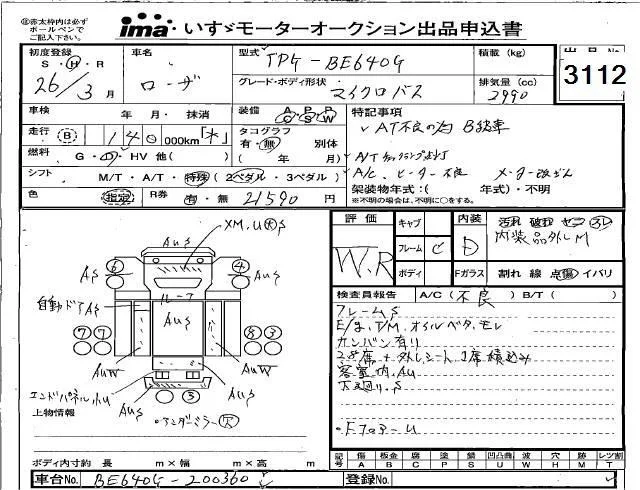 ㊟赤太枠内は必ず
ボールペンで
ご記入下さい。
ima・いすゞモーターオークション出品申込書
初度登録 S・H・R
26/3月
車名 ローザ
型式 TPG-BE640G
積載(kg)
出品No
3112
グレード・ボディ形状 マイクロバス
排気量(cc) 2990
車検 年 月・抹消
装備 A P R
C S W
特記事項
・AT不良の為 B級車
走行 B 140 000km
タコグラフ 有・無 別体
( 年 月)
燃料 G・D・HV 他( )
・A/Tチェックランプ点灯
シフト M/T・A/T・特殊(2ペダル・3ペダル)
・A/C、ヒーター不良 メーター改ざん
架装物年式:( 年式)・不明
※不明の場合は、不明に○をする。
色 指定 R券 有・無 21590 円
評価 W.R
キャブ
フレーム C
ボディ
内装 D
汚れ 破れ セコ ヌレ
内装品外しM
Fガラス 割れ 線 点傷 イバリ
XM,U大S
AuS
AS AuS
自動ドア AS
ルーフ
AuS
AuW AuW
エンドパネル小U
AuS AuS
・アンダーミラー欠
上物情報
検査員報告 A/C(不良) B/T( )
フレームS
E/g、T/M、オイルベタ、モレ
カンバン有り
28席+外しシート1席積込み
客室内、Au
下廻り、S
・ドアU
記号 傷 板金 腐 塗 錆 凹凸曲 波 穴 跡 レツ割
A B C P S U W H M T
ボディ内寸約 長 m×幅 m×高 m
車台No. BE640G-200360
登録No.